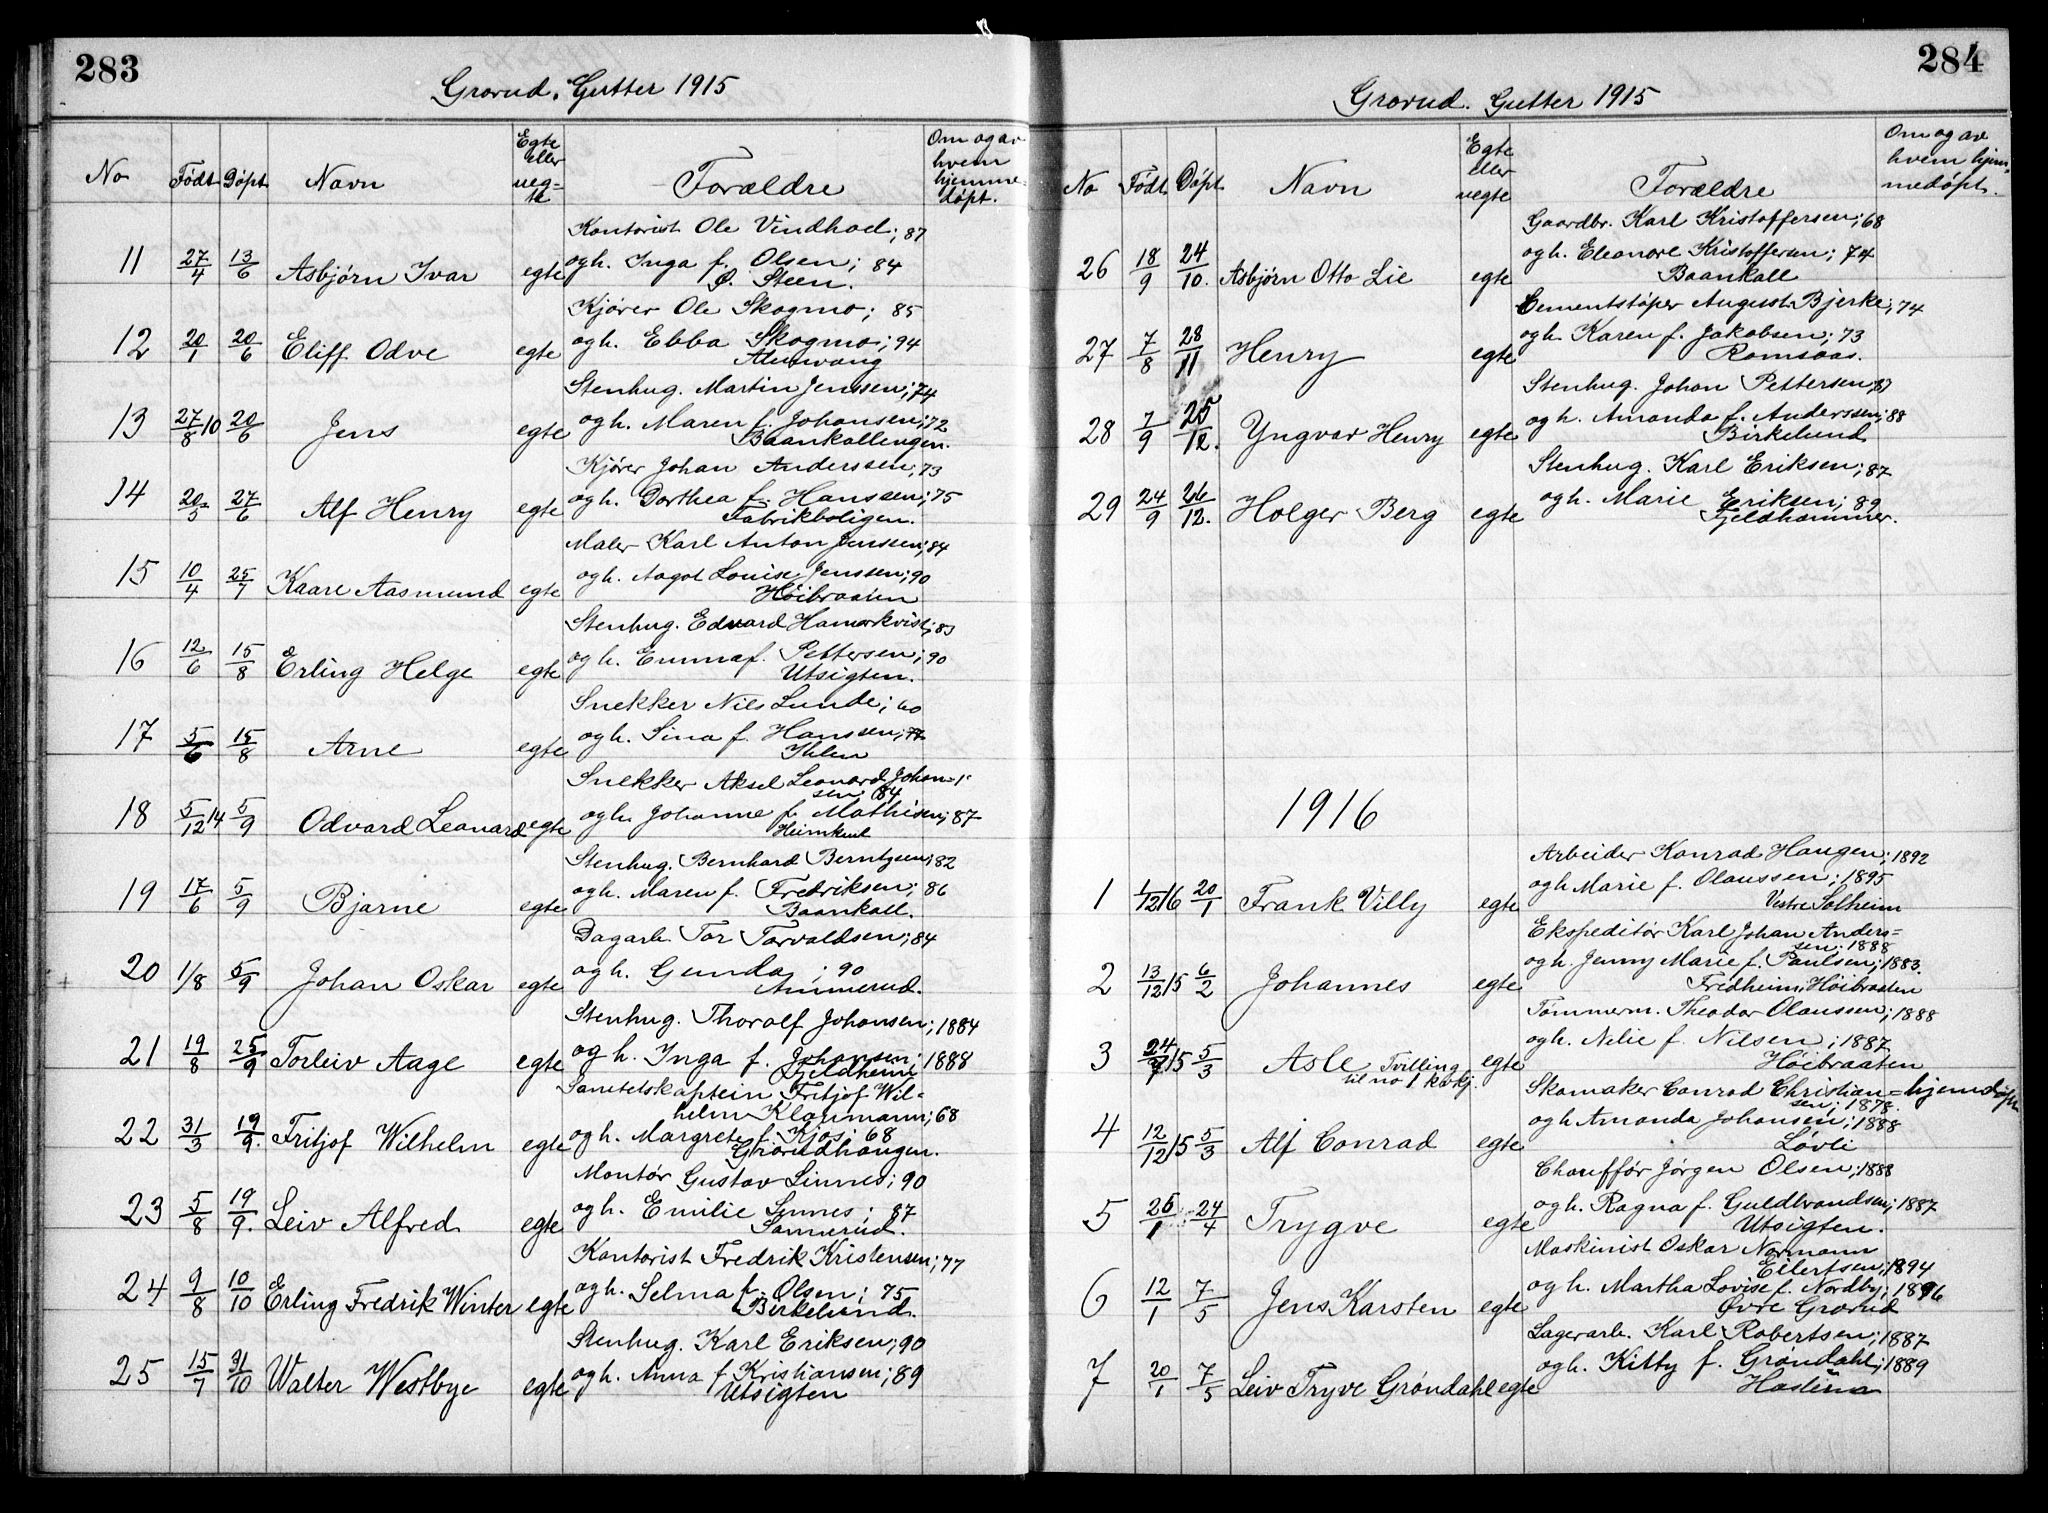 283
Grorud. Gutter 1915
No Født Døpt Navn Egte eller ueg= te Forældre Om og av hvem hjemme= døpt.
Kontorist Ole Vindhod; 87
11 27/4 13/6 Asbjørn Ivar egte og h. Inga f. Olsen; 84
Ø. Steen.
Kjører Ole Skogmo; 85
12 20/1 20/6 Eliff Odve egte og h. Ebba Skogmo; 94
Almvang
Stenhug. Martin Jenssen; 74
13 27/8 10 20/6 Jens egte og h. Maren f. Johansen; 72
Baankallengen.
Kjører Johan Anderssen; 73
14 20/5 27/6 Alf Henry egte og h. Dorthea f. Hanssen; 75
Fabrikboligen.
Maler Karl Anton Jenssen; 84
15 10/4 25/7 Kaare Aasmund egte og h. Aagot Louise Jenssen; 90
Høibraaten
Stenhug. Edvard Hamerkvist; 83
16 12/6 15/8 Erling Helge egte og h. Emma f. Pettersen; 90
Utsigten.
Snekker Nils Lunde; 60
17 5/6 15/8 Arne egte og h. Sina f. Hanssen; 77
Ihlen
Snekker Aksel Leonard Johan=
sen; 84
18 5/12 14 5/9 Odvard Leonard egte og h. Johanne f. Mathisen; 87
Stenhug. Bernhard Berntzsen; 82
19 17/6 5/9 Bjarne egte og h. Maren f. Fredriksen; 86
Baankall.
Dagarb. Tor Torvaldsen; 84
20 1/8 5/9 Johan Oskar egte og h. Gunda; 90
Ammerud.
Stenhug. Thoralf Johansen; 1884
21 19/8 25/9 Torleiv Aage egte og h. Inga f. Johansen; 1888
Fjeldheim
Sanitetskaptein Fritjof Wil=
helm Klaumann; 68
22 31/3 19/9. Fritjof Wilhelm egte og h. Margrete f. Kjos; 68
Grorudhaugen.
Montør Gustav Linnes; 90
23 5/8 19/9. Leiv Alfred egte og h. Emilie Linnes; 87
Sannerud.
Kontorist Fredrik Kristensen; 77
24 9/8 10/10 Erling Fredrik Winter egte og h. Selma f. Olsen; 75
Birkelund.
Stenhug. Karl Eriksen; 90
25 15/7 31/10 Walter Westbye egte og h. Anna f. Kristiansen; 89
Utsigten
284
Grorud. Gutter 1915
No Født Døpt Navn Egte eller uegte Forældre Om og av hvem hjem= medøpt.
Gaardbr. Karl Kristoffersen; 68
26 18/9 24/10. Asbjørn Otto Lie egte og h. Eleonore Kristoffersen; 74
Baankall
Cementstøper August Bjerke; 74
27 7/8 28/11 Henry egte og h. Karen f. Jakobsen; 73
Romsaas.
Stenhug. Johan Pettersen; 87
28 7/9 25/12. Yngvar Henry egte og h. Amanda f. Anderssen; 88
Birkelund
Stenhug. Karl Eriksen; 87
29 24/9 26/12. Holger Berg egte og h. Marie Eriksen; 89
Fjeldhammer.
1916
Arbeider Konrad Haugen; 1892
1 1/12 16 20/1 Frank Villy egte og h Marie f. Olaussen; 1895
Vestre Solheim
Ekspeditør Karl Johan Anders=
sen; 1888
2 13/12 15 6/2 Johannes egte og h. Jenny Marie f. Paulsen; 1883.
Fredheim, Høibraaten
Tømmerm. Theodor Olaussen; 1888
3 24/7 15 5/3 Asle Tvilling egte og h. Nelie f. Nilsen; 1887
til no 1 kvkj. Høibraaten
Skomaker Conrad Christian= hjemdøpt
sen; 1878.
4 12/12 15 5/3 Alf Conrad egte og h Amanda Johansen; 1888
Løvli
Chauffør Jørgen Olsen; 1888
5 26/1 24/4 Trygve egte og h. Ragna f. Guldbrandsen; 1887
Utsigten.
Maskinist Oskar Normann
Eilertsen; 1894
6 12/1 7/5 Jens Karsten egte og h. Martha Lovise f. Nordby; 1896
Øvre Grorud
Lagerarb. Karl Robertsen; 1887
7 20/1 7/5 Leiv Tryve Grøndahl egte og h. Kitty f. Grøndahl; 1889